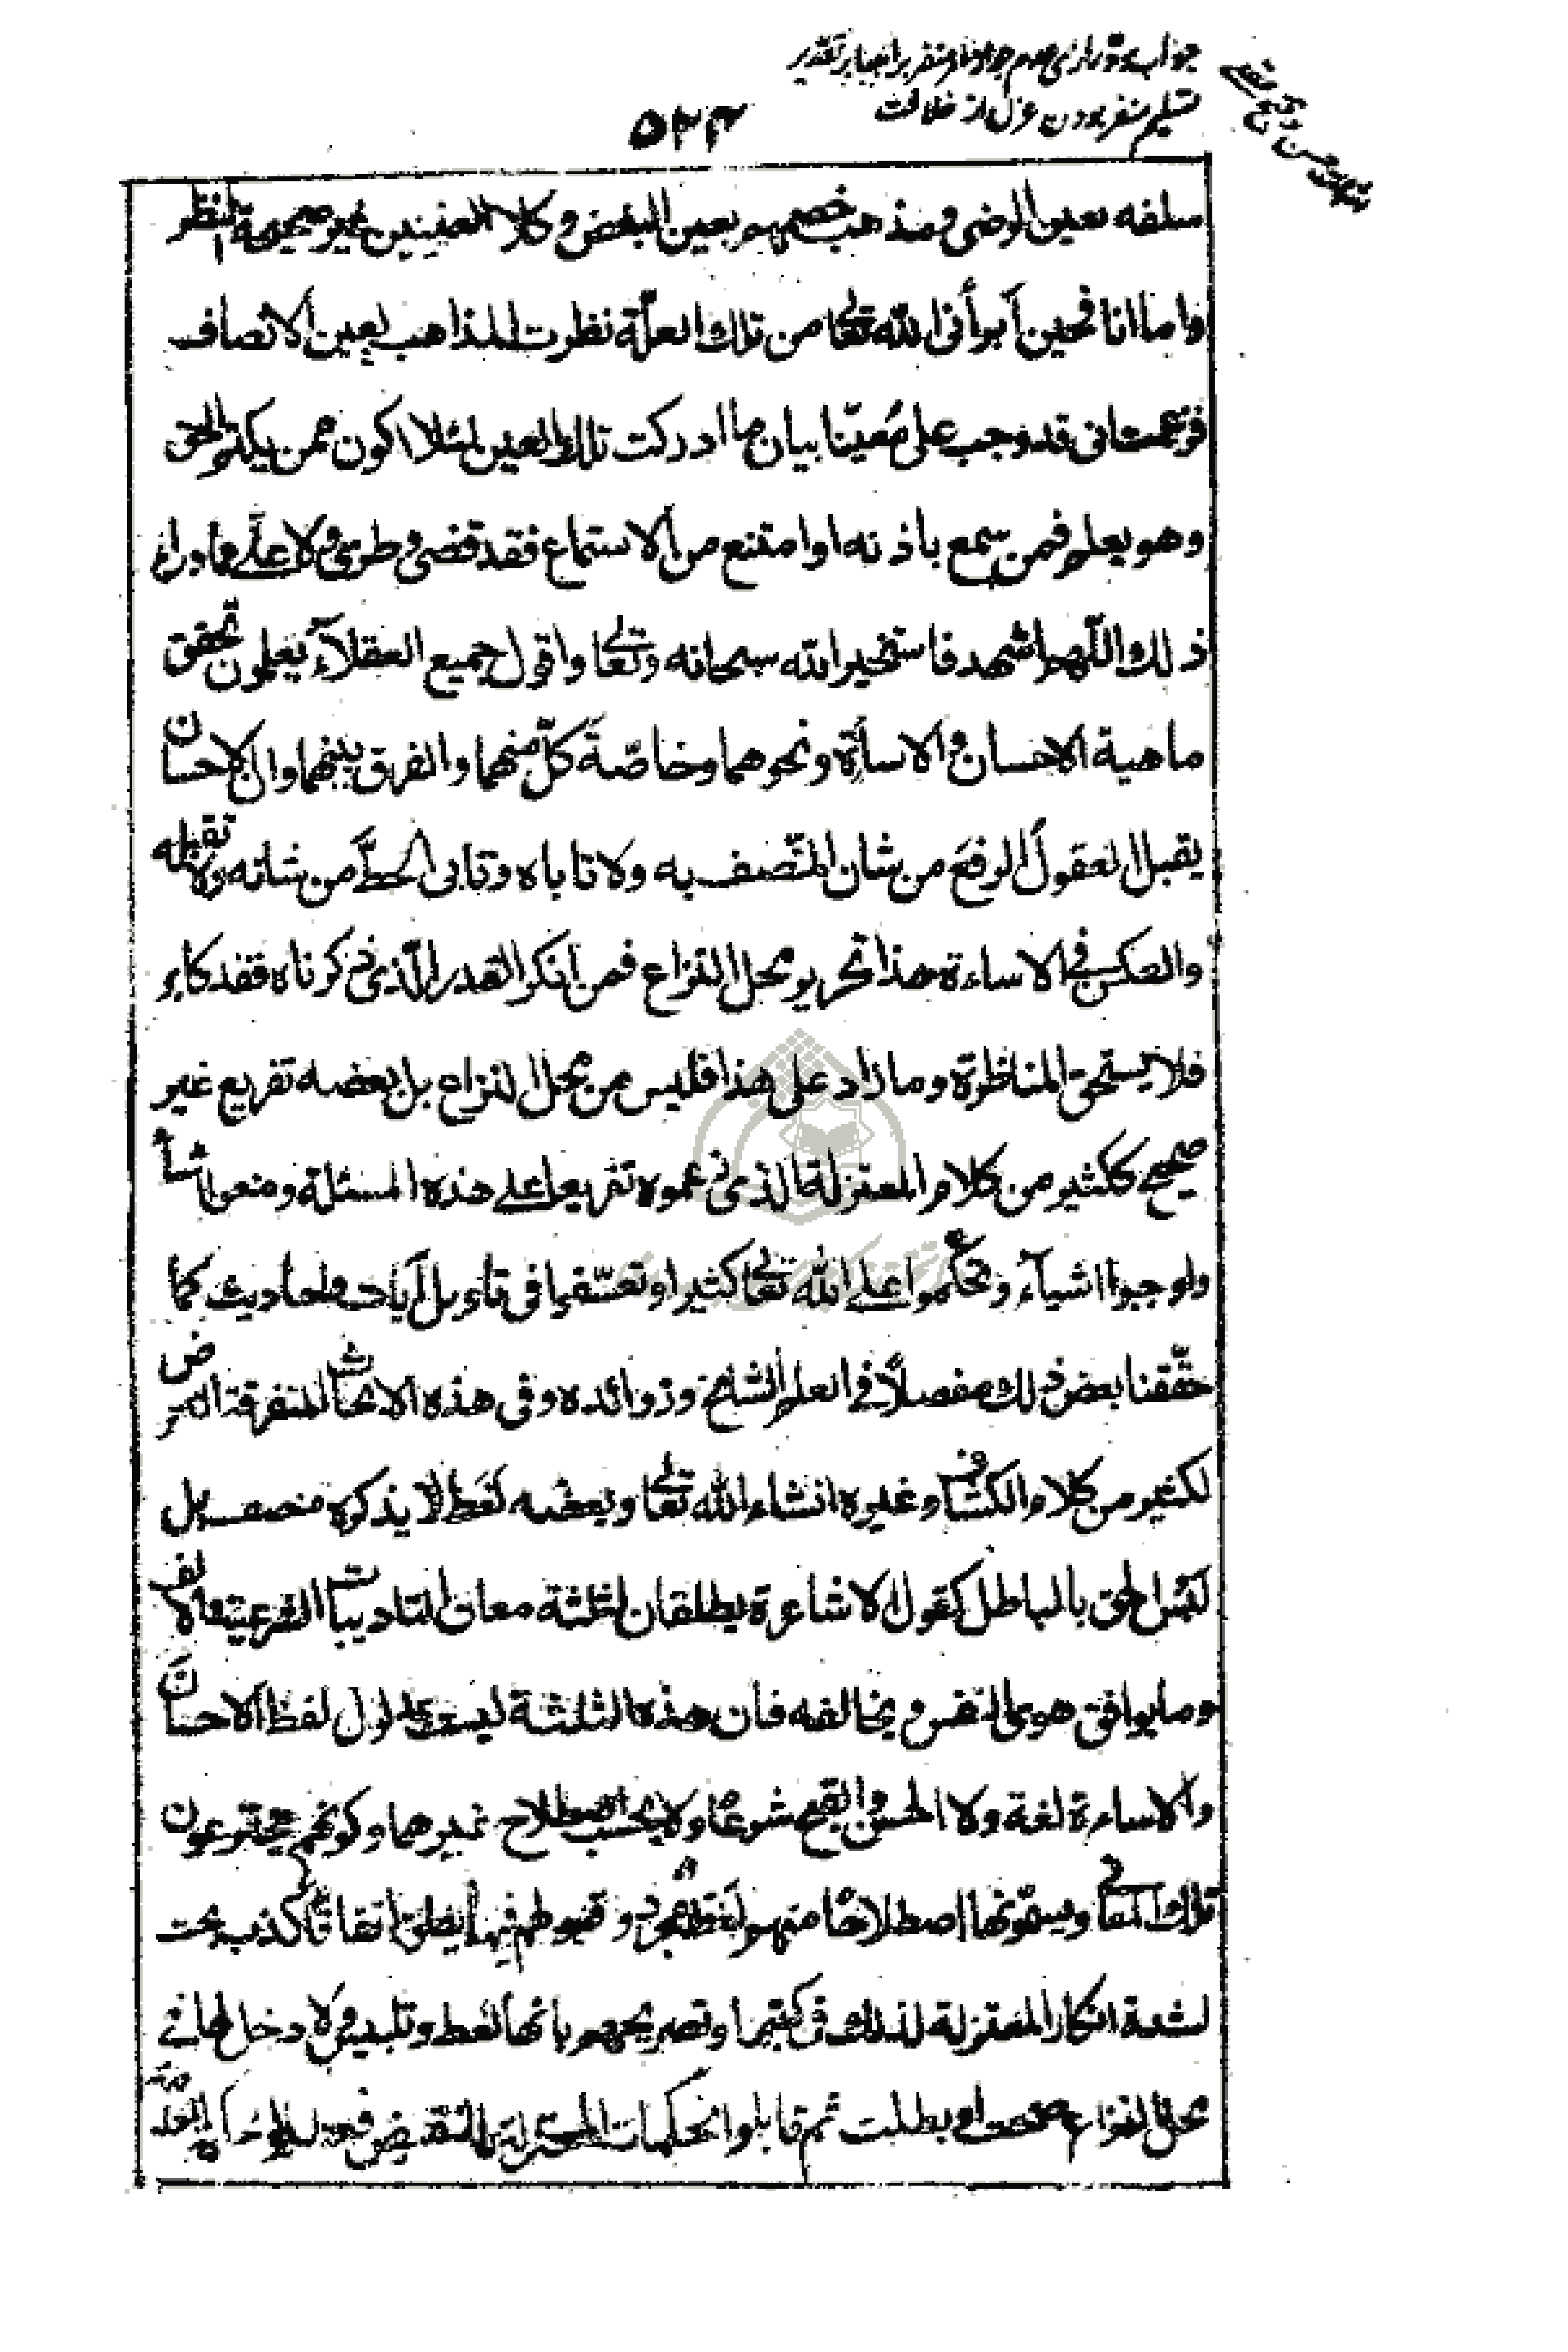 جواب رازی عدم جواز منفر بر انبیا بر تقدیر
تسلیم منفر بودن عزل از خلافت
ثبوت حسن و قبح عقلی
۵۳۴
سلفه بعین الرضی ومذهب خصمهم بعین البغض وكلا العینین غیر صحیحة النظر
واما انا فحین أبرأنی الله تعالی من تلك العلّة نظرت المذاهب بعین الانصاف
فزعمت انی قد وجب علی مُعیّنا بیان ما ادركت تلك العین لئلا اكون ممن یكتم الحق
وهو یعلم فمن سمع باذنه او امتنع من الاستماع فقد قضی وطری ولا علیّ ما وراء
ذلك اللّهم اشهد فاستخیر الله سبحانه وتعالی واقول جمیع العقلاء یعلمون تحقق
ماهیة الاحسان والاساءة ونحوهما وخاصّة كلّ منهما والفرق بینهما وان الاحسان
یقبل العقول الرفع من شان المتّصف به ولا تاباه وتابی الحطّ من شانه ولا تقبله
والعكس فی الاساءة هذا تحریر محل النزاع فمن انكر القدر الّذی ذكرناه فقد كابر
فلا یستحق المناظرة وما زاد علی هذا فلیس من محل النزاع بل بعضه تفریع غیر
صحیح ككثیر من كلام المعتزلة الذی زعموه تفریعا علی هذه المسئلة ومنعوا شأ
ولو جبوا اشیاء وتحكّموا علی الله تعالی كثیرا وتعسّفوا فی تاویل آیات واحادیث كما
حقّقنا بعض ذلك مفصلاً فی العلم الشامخ وزوائده وفی هذه الابحاث المتفرقة التعرض
لكثیر من كلام الكشاف وغیره انشاء الله تعالی وبعضه لغط لا یذكره منصف بل
لبس الحق بالباطل كقول الاشاعرة یطلقان لثلثة معان التادیبات الشرعیة والالف
وما یوافق هوی النفس ویخالفه فان هذه الثلثة لیست مدلول لفظ الاحسان
والاساءة لغة ولا الحسن والقبح شرعا ولا بحسب اصطلاح غیرهما وكونهم یخترعون
تلك المعانی ویسمّونها اصطلاحا منهم لغط مجرد وقبولهم فیها یطلق اتفاقا كذب بحت
لشدة انكار المعتزلة لذلك كثیرا وتصریحهم بانها لغط وتلبیس ولا دخل لها فی
محل النزاع بطلت ثم قابلوا تحكمات المعتزلة بالنقیض